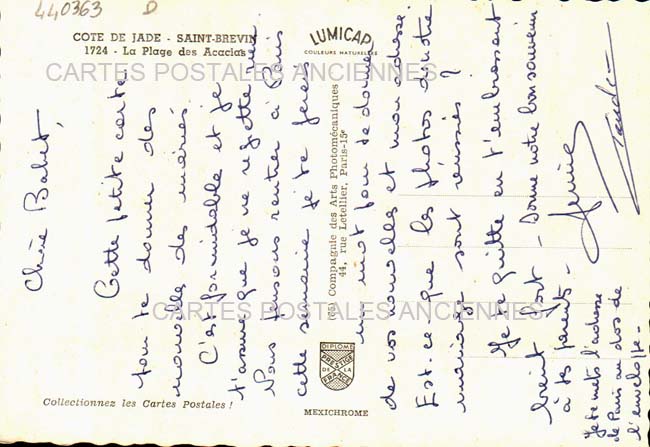 440363 D
COTE DE JADE - SAINT-BREVIN
1724 - La Plage des Acacias
LUMICAP
COULEURS NATURELLES
CARTES POSTALES ANCIENNES
Chère Babet,
Cette petite carte
pour te donner des
nouvelles des mariés
C'est formidable et je
t'assure que je ne regrette rien
Nous pensons rentrer à Paris
cette semaine je te ferai
un mot pour te donner
de vos nouvelles et mon adresse.
Est-ce que les photos de notre
mariage sont réussies ?
Je te quitte en t'embrassant
bien fort - Donne notre bon souvenir
à tes parents -
Je te mets l'adresse
de Paris au dos de
l'enveloppe -
(65) Compagnie des Arts Photomécaniques
44, rue Letellier, Paris-15e
CARTES POSTALES ANCIENNES
DIPLOME
PRESTIGE
DE LA
FRANCE
Collectionnez les Cartes Postales !
MEXICHROME